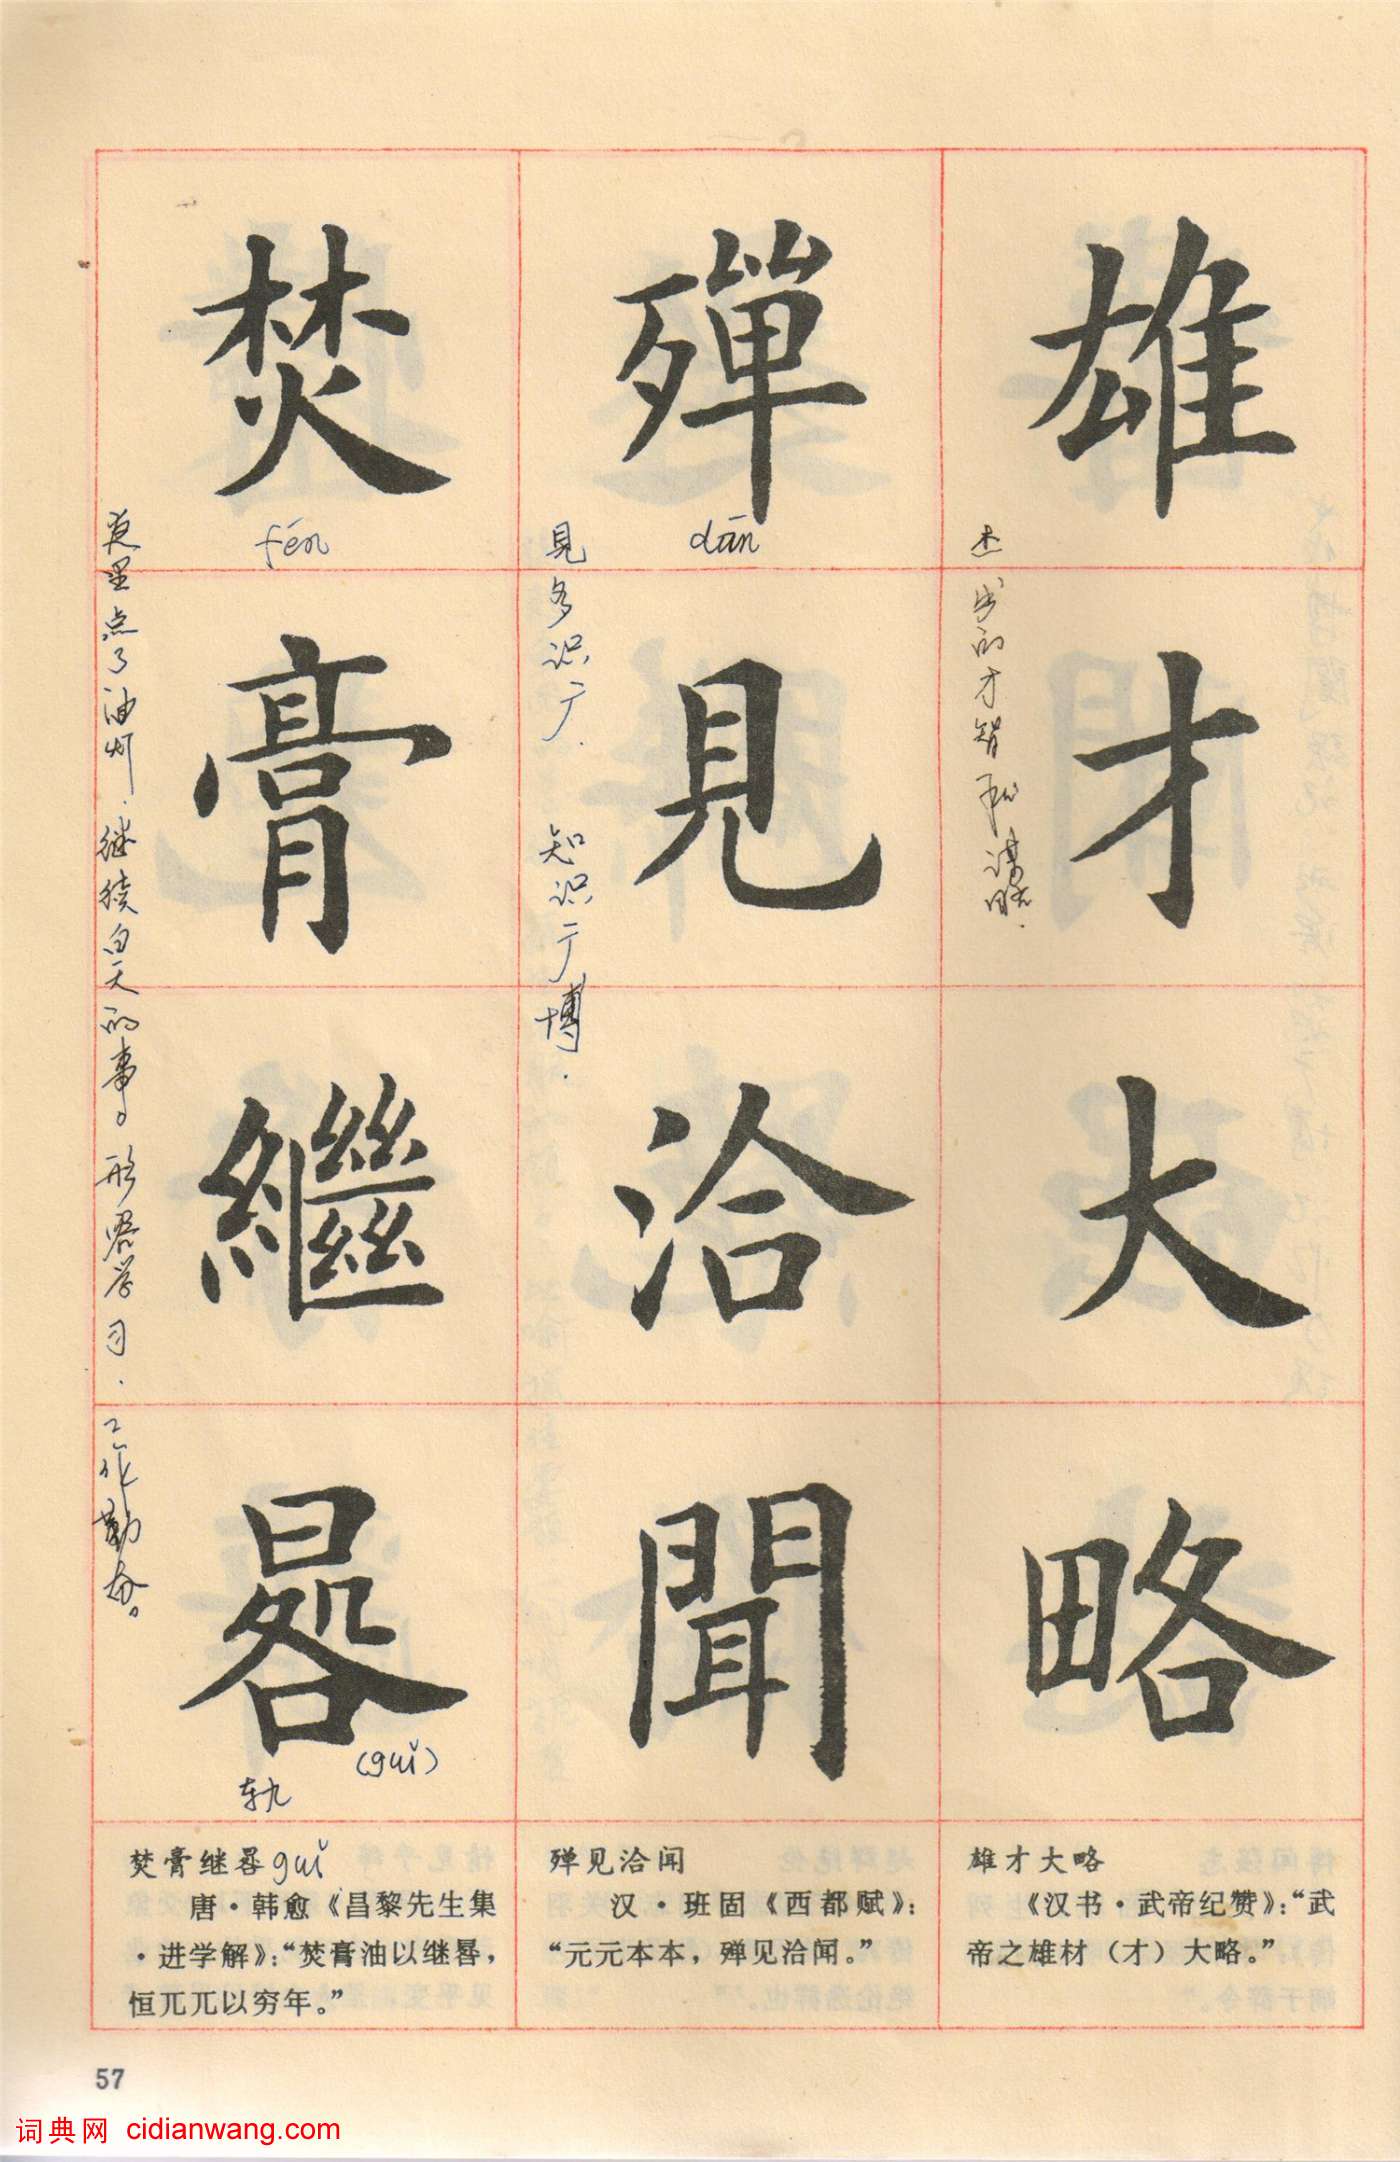 雄才大略
杰出的才智和谋略.
殫見洽聞
dān
見多识广.知识广博.
焚膏繼晷
fén
夜里点了油灯.继续白天的事。形容学习.工作勤奋。
(guǐ)
轨
雄才大略
《汉书·武帝纪赞》：“武
帝之雄材（才）大略。”
殚见洽闻
汉·班固《西都赋》：
“元元本本，殚见洽闻。”
焚膏继晷guǐ
唐·韩愈《昌黎先生集
·进学解》：“焚膏油以继晷，
恒兀兀以穷年。”
57
词典网 cidianwang.com